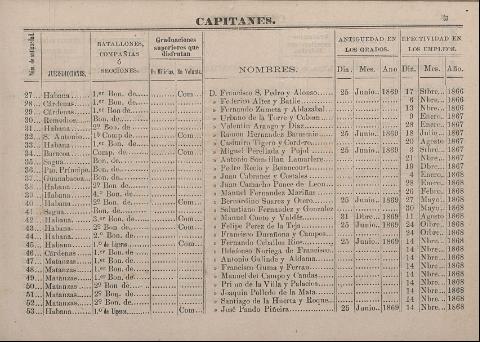 CAPITANES.
Núm. de antigüedad. JURISDICCIONES. BATALLONES, COMPAÑÍAS ó SECCIONES. Graduaciones superiores que disfrutan En Milicias. En Volunts. NOMBRES. ANTIGUEDAD EN LOS GRADOS. Día. Mes. Año. EFECTIVIDAD EN LOS EMPLEOS. Día. Mes. Año.
27... Habana 1.er Bon. de. Com. D. Francisco S. Pedro y Alonso 25 Junio. 1869 17 Stbre. 1866
28... Cárdenas 1.er Bon. de. » Federico Altes y Batlle 6 Nbre. 1866
29... Cárdenas 1.er Bon. de. » Fernando Zumeta y Aldazabal 13 Nbre. 1866
30... Remedios 1.er Bon. de. » Urbano de la Torre y Coban 9 Enero. 1867
31... Habana 2º Bon. de » Valentin Arango y Diaz 28 Enero. 1867
32... S. Antonio Comp. de Com. » Ramon Hernandez 25 Junio. 1869 18 Julio. 1867
33... Habana 1.er Bon. de. » Casimiro Tigero y 20 Agosto 1867
34... Baracoa Comp. de Com. » Miguel y Pujol 25 Junio. 1869 3 Stbre. 1867
35... Sagua Bon. de. » Antonio Lamarlere 21 Nbre. 1867
36... Pto. Príncipe Bon. de. » Pedro Recio y Betancourt 19 Dbre. 1867
37... Guanabacoa Bon. de. » Juan Cabennes y Costales 4 Enero. 1868
38... Habana 2º Bon. de » Juan Camacho Ponce de Leon 28 Enero. 1868
39... Habana 4.º Bon. de » Manuel Fernandez Mariñas 26 Febro. 1868
40... Habana 2º Bon. de Com. » Bernardino Suarez y Otero 25 Junio. 1869 27 Mayo. 1868
41... Sagua Bon. de. » Salustiano Fernandez y Gonzalez 30 Mayo. 1868
42... Habana 3.er Bon. de. Com. » Manuel Cueto y Valdés 31 Dbre. 1869 11 Agosto 1868
43... Habana 2º Bon. de Com. » Felipe Perez de la Teja 25 Junio. 1869 24 Otbre. 1868
44... Habana 2º Bon. de » Francisco Dueñena y Campos 24 Otbre. 1868
45... Habana 1.º de Ligers. Com. » Fernando Ceballos Rios 25 Junio. 1869 14 Nbre. 1868
46... Cárdenas 1.er Bon. de. » Ildefonso Noriega de Francisco 14 Nbre. 1868
47... Matanzas 1.er Bon. de. » Antonio Galindo y Aldama 14 Nbre. 1868
48... Matanzas 1.er Bon. de. » Francisco Guma y Ferran 14 Nbre. 1868
49... Matanzas 1.er Bon. de. » Manuel del Campo y Candas 14 Nbre. 1868
50... Matanzas 1.er Bon. de. » de la Villa y Palacios 14 Nbre. 1868
51... Matanzas 2º Bon. de. » Joaquin Polledo de la Mata 14 Nbre. 1868
52... Matanzas 2º Bon. de. » Santiago de la Huerta y Roque 14 Nbre. 1868
53... Habana 1.º de Ligers. Com. » José Pando Piñeira 25 Junio. 1869 14 Nbre. 1868